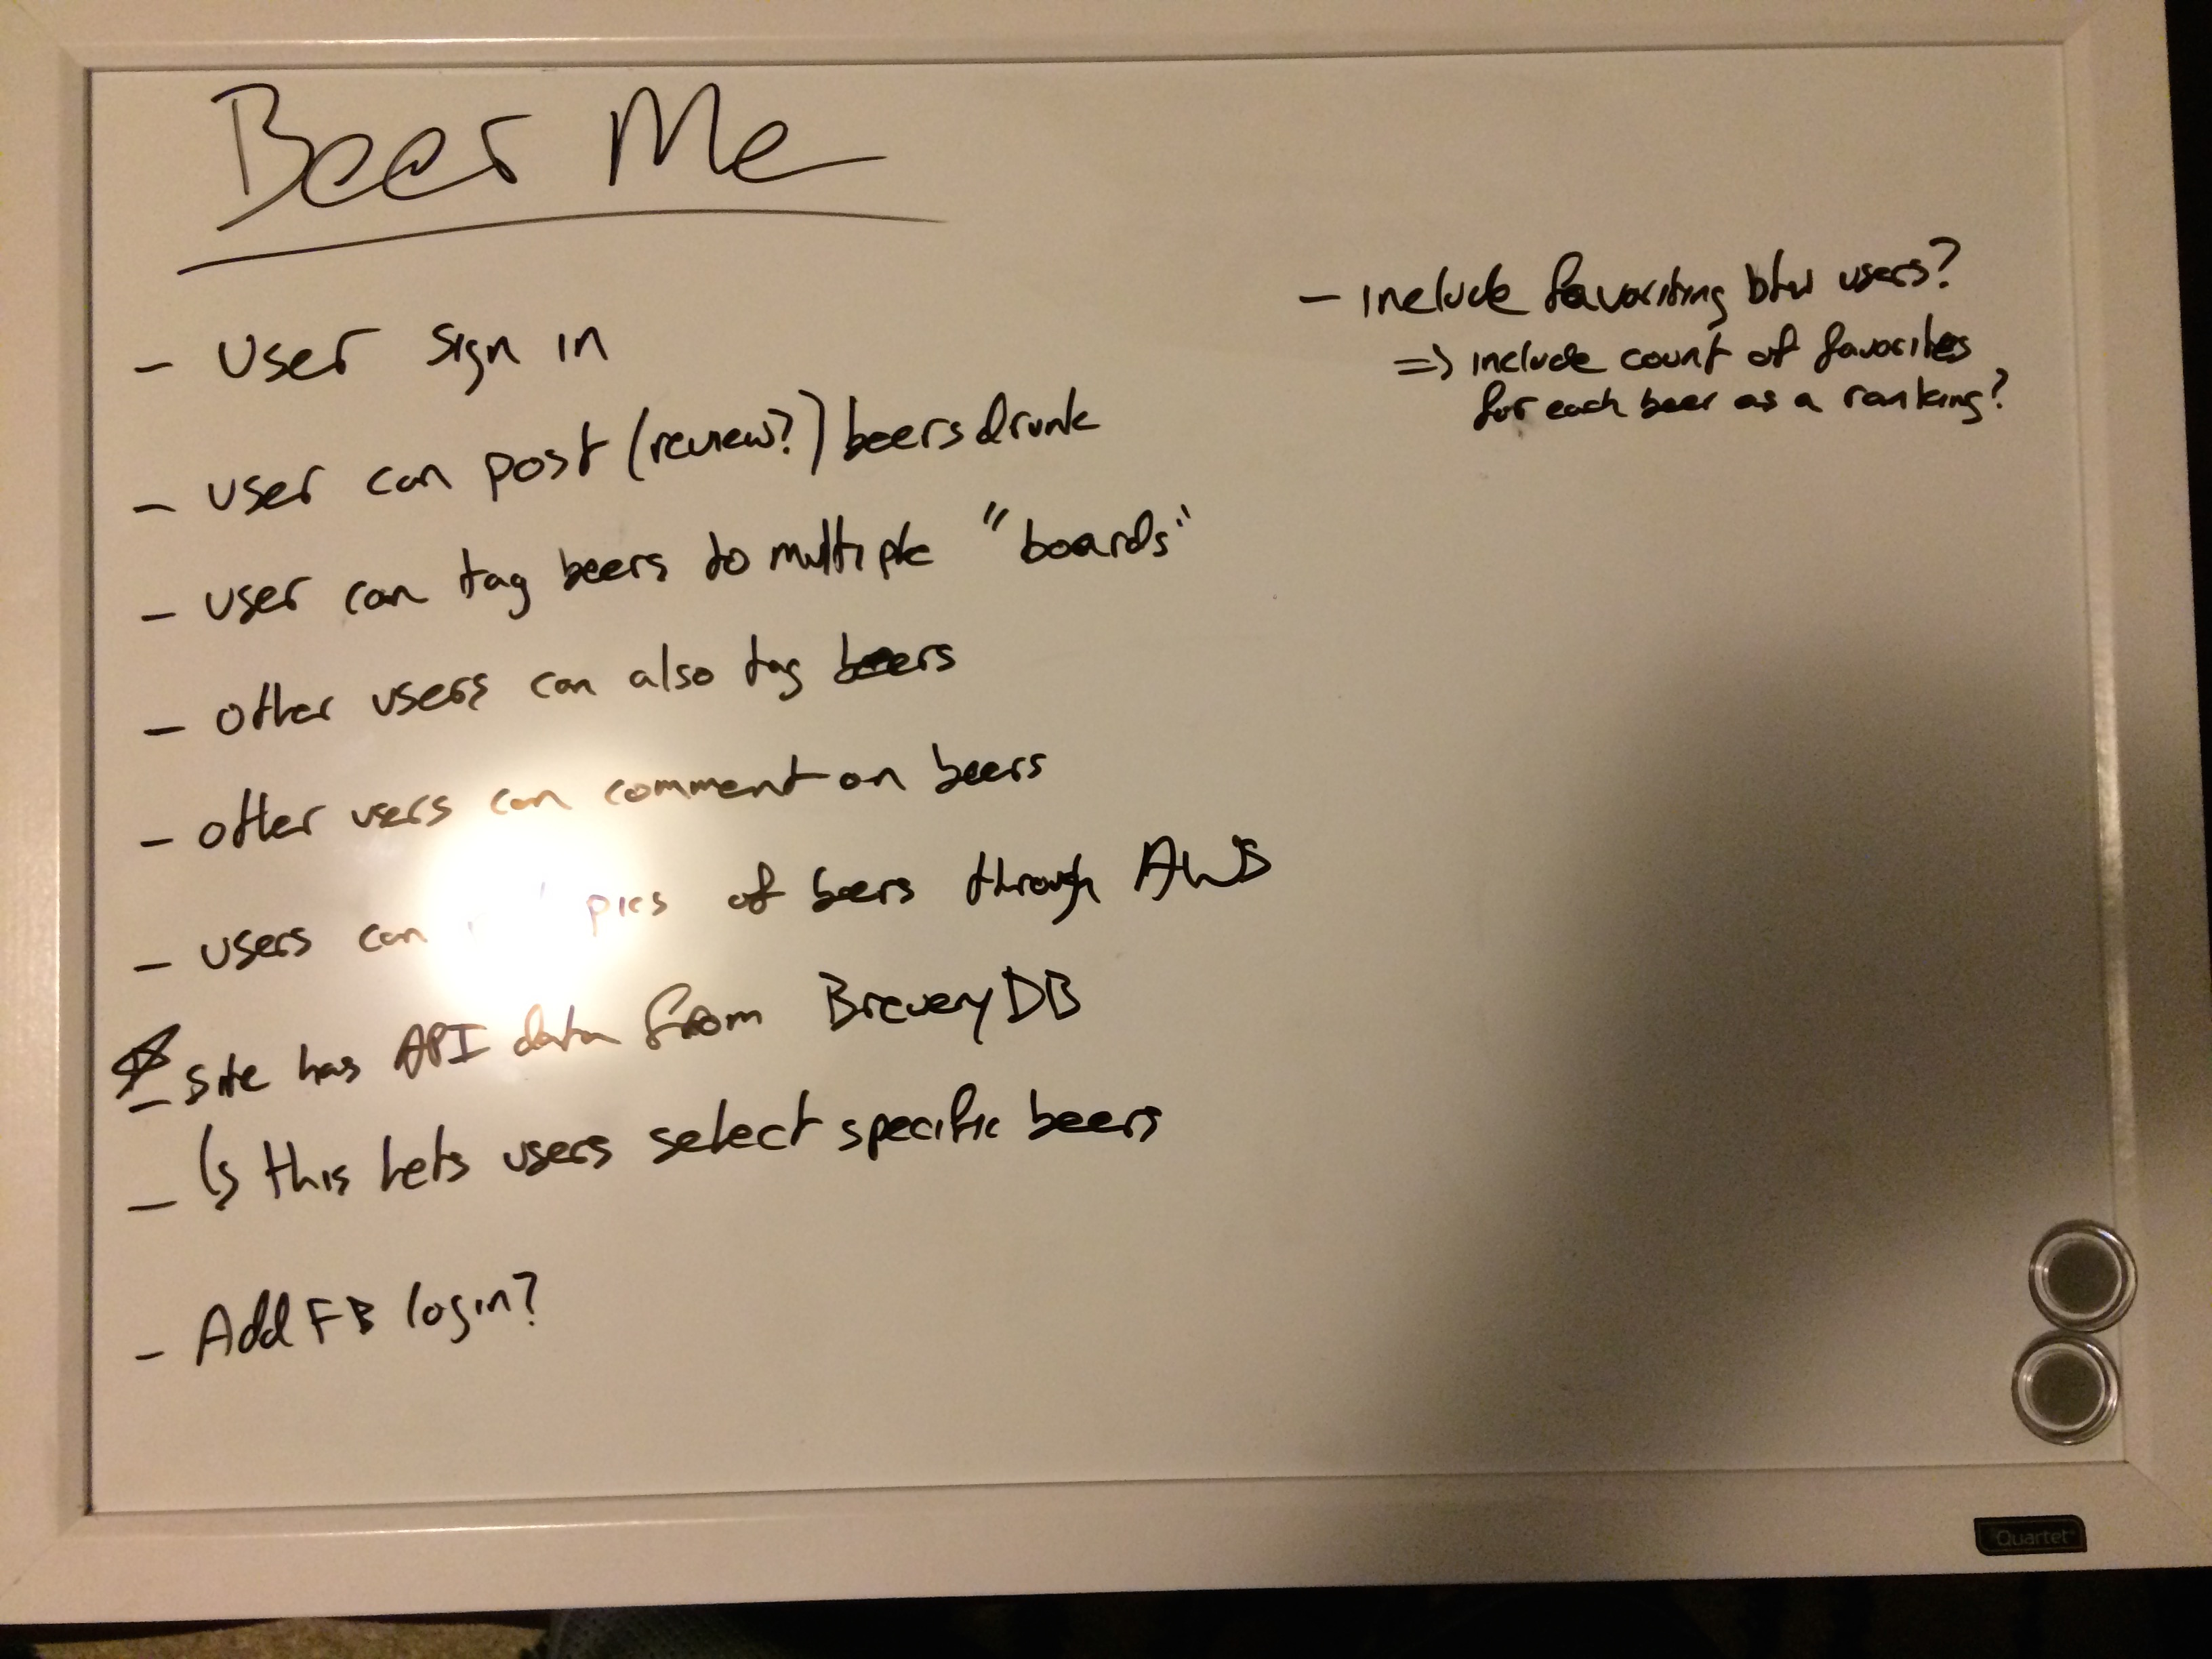 Beer Me
- User sign in
- user can post (review?) beers drunk
- user can tag beers to multiple "boards"
- other users can also tag beers
- other users can comment on beers
- users can pics of beers through AWS
- site has API data from BreweryDB
- ↳ this lets users select specific beers
- Add FB login?
- include favoriting btw users?
=> include count of favorites
for each beer as a ranking?
Quartet